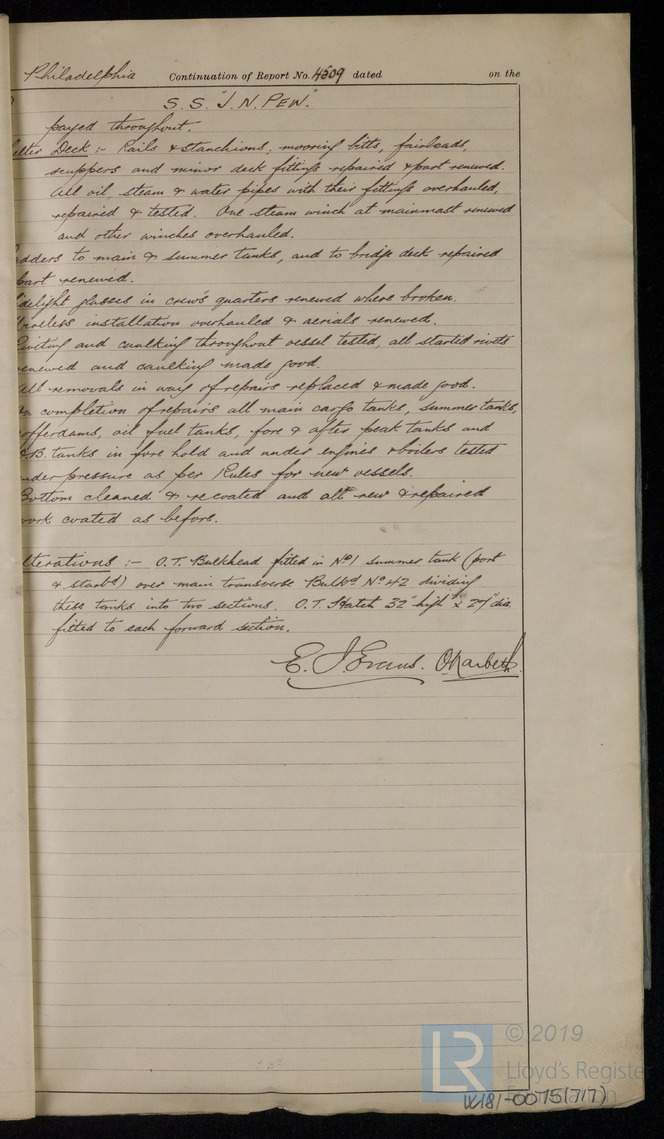 Philadelphia Continuation of Report No. 4509 dated on the
S.S. "J. N. PEW."
payed throughout.
elter Deck :- Rails & stanchions, mooring bitts, fairleads,
scuppers and minor deck fittings repaired & part renewed.
All oil, steam & water pipes with their fittings overhauled,
repaired & tested. One steam winch at mainmast renewed
and other winches overhauled.
adders to main & summer tanks, and to bridge deck repaired
part renewed.
idelight glasses in crew's quarters renewed where broken.
ireless installation overhauled & aerials renewed.
Riveting and caulking throughout vessel tested, all started rivets
enewed and caulking made good.
All removals in way of repairs replaced & made good.
On completion of repairs all main cargo tanks, summer tanks,
offerdams, oil fuel tanks, fore & after peak tanks and
D.B. tanks in fore hold and under engines & boilers tested
nder pressure as per Rules for new vessels.
Bottom cleaned & recoated and all new & repaired
work coated as before.
lterations :- O.T. Bulkhead fitted in No 1 summer tank (port
& starbd) over main transverse Bulkd No 42 dividing
these tanks into two sections. O.T. Hatch 32" high x 24" dia.
fitted to each forward section.
E. J. Evans.
LR © 2019
Lloyd's Register
W181-0075(7/7)